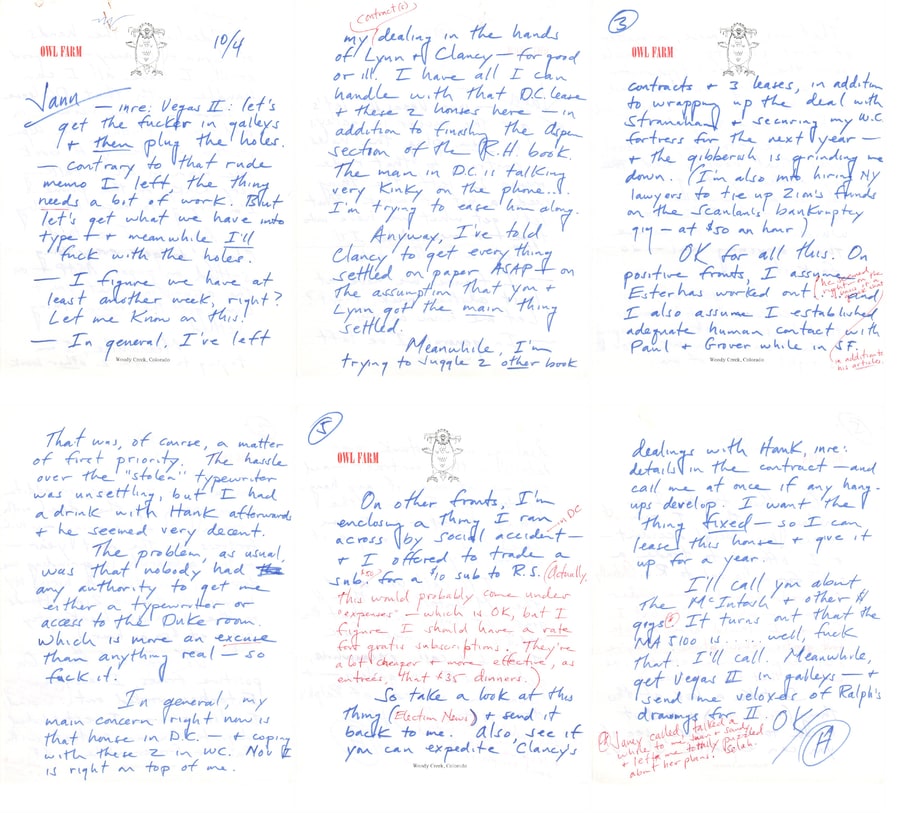 OWL FARM
10/4
Jann — inre: Vegas II: let's
get the fucker in galleys
+ then plug the holes.
— Contrary to that rude
memo I left, the thing
needs a bit of work. But
let's get what we have into
type + meanwhile I'll
fuck with the holes.
— I figure we have at
least another week, right?
Let me know on this.
— In general, I've left
Woody Creek, Colorado
contract(s)
my dealing in the hands
of Lynn & Clancy — for good
or ill. I have all I can
handle with that D.C. lease
+ these 2 houses here — in
addition to finishing the Aspen
section of the R.H. book.
The man in D.C. is talking
very kinky on the phone....
I'm trying to ease him along.
Anyway, I've told
Clancy to get everything
settled on paper ASAP + on
the assumption that you +
Lynn got the main thing
settled.
Meanwhile, I'm
trying to juggle 2 other book
3
OWL FARM
contracts + 3 leases, in addition
to wrapping up the deal with
Stranahan + securing my W.C.
fortress for the next year —
+ the gibberish is grinding me
down. (I'm also into hiring NY
lawyers to tie up Zim's funds
on the Scanlan's bankruptcy
gig — at $50 an hour)
OK for all this. On
positive fronts, I assume
Esterhas worked out and
I also assume I established
adequate human contact with
Paul + Grover while in SF.
in addition to
his articles.
Woody Creek, Colorado
That was, of course, a matter
of first priority. The hassle
over the "stolen" typewriter
was unsettling, but I had
a drink with Hank afterwards
+ he seemed very decent.
The problem, as usual,
was that nobody had
any authority to get me
either a typewriter or
access to the Duke room.
Which is more an excuse
than anything real — so
fuck it.
In general, my
main concern right now is
that house in D.C. — + coping
with these 2 in WC. Nov 1
is right on top of me.
5
OWL FARM
On other fronts, I'm
enclosing a thing I ran
in DC
across by social accident —
+ I offered to trade a
sub. for a $10 sub to R.S. (Actually,
this would probably come under
"expenses" — which is OK, but I
figure I should have a rate
for gratis subscriptions. They're
a bit cheaper + more effective, as
entrees, that $35 dinners.)
So take a look at this
thing (Election News) + send it
back to me. Also, see if
you can expedite Clancy's
Woody Creek, Colorado
dealings with Hank, inre:
details in the contract — and
call me at once if any hang-
ups develop. I want the
thing fixed — so I can
lease this house + give it
up for a year.
I'll call you about
the McIntosh + other H
gigs. It turns out that the
MA 5100 is ..... well, fuck
that. I'll call. Meanwhile,
get Vegas II in galleys — +
send me veloxes of Ralph's
drawings for II. OK
H
Janey called, talked a
while to me + Sandy
+ left me totally puzzled
about her plans. Selah.